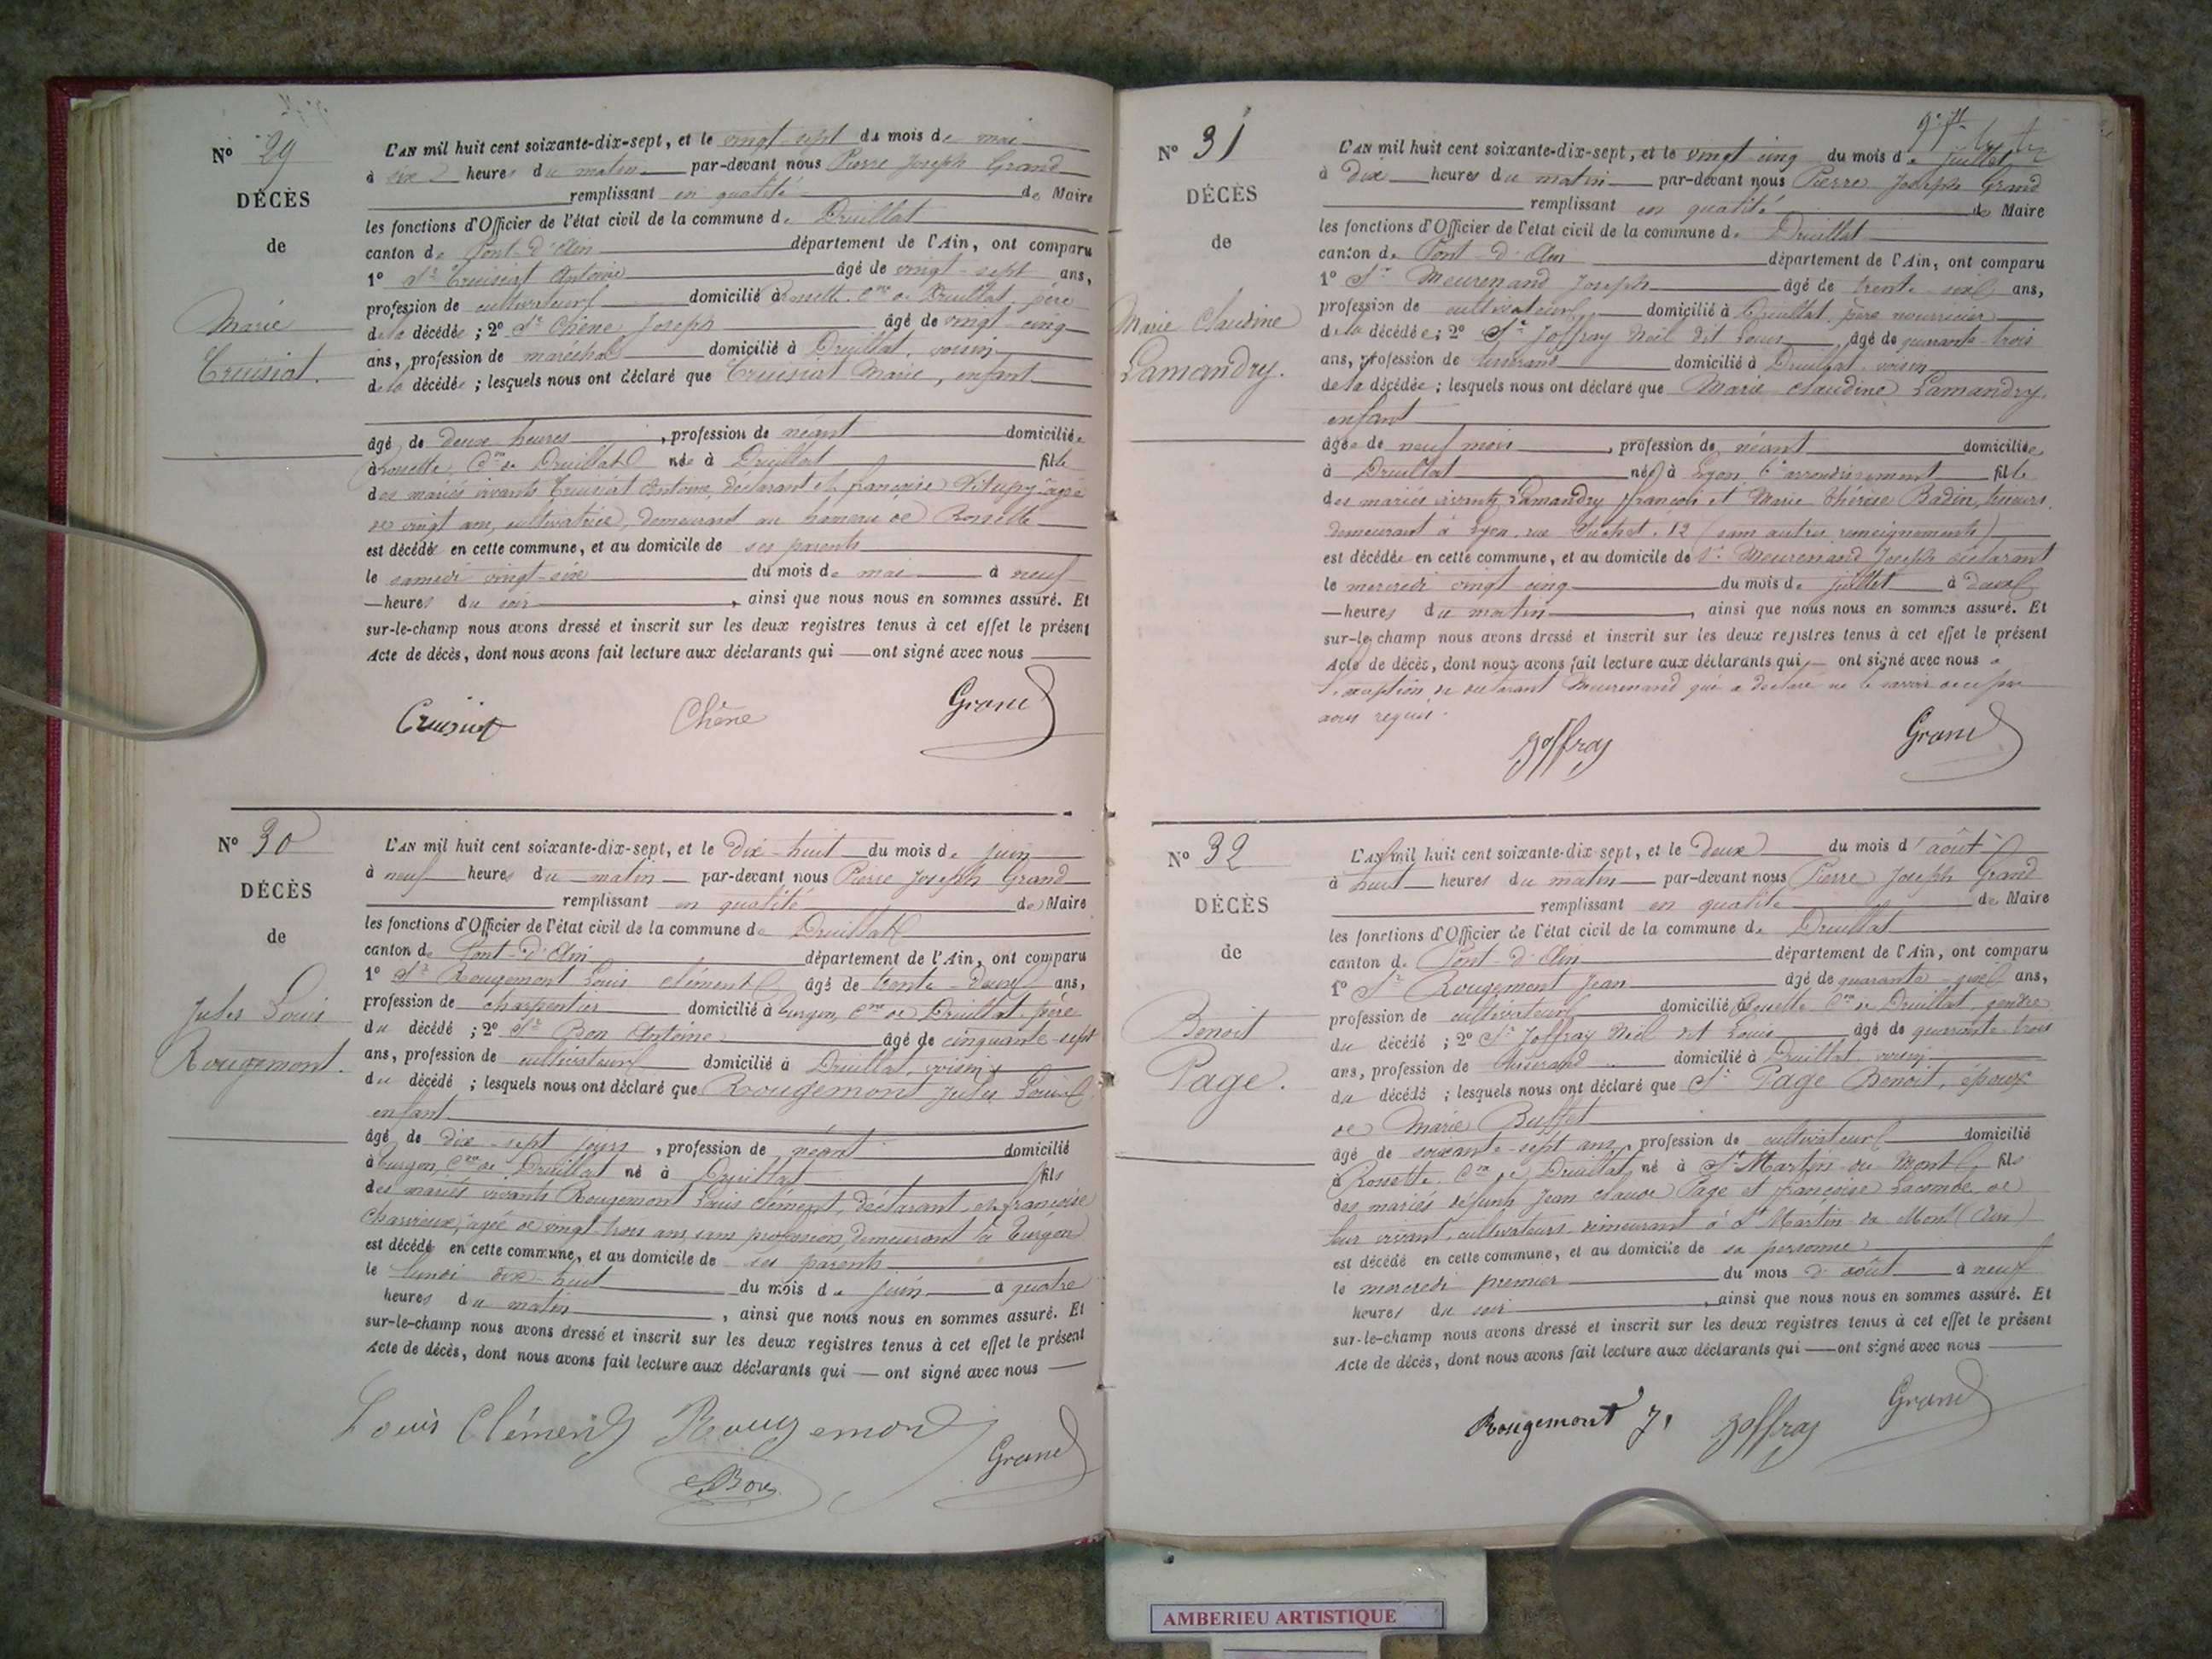 Nº 29
DÉCÈS
de
Marie
Cruisiat.
L'AN mil huit cent soixante-dix-sept, et le vingt-sept du mois de mai
à six heures du matin par-devant nous Pierre Joseph Grand
remplissant en qualité de Maire
les fonctions d'Officier de l'état civil de la commune de Druillat
canton de Pont-d'Ain département de l'Ain, ont comparu
1º Sr Cruisiat Antoine âgé de vingt-sept ans,
profession de cultivateur domicilié à Rossette, Cne de Druillat, père
de la décédée ; 2º Sr Chêne Joseph âgé de vingt-cinq
ans, profession de maréchal domicilié à Druillat, voisin
de la décédée ; lesquels nous ont déclaré que Cruisiat Marie, enfant
âgé de deux heures, profession de néant domiciliée
à Rossette, Cne de Druillat née à Druillat fille
des mariés vivants Cruisiat Antoine, déclarant et françoise âgée
de vingt ans, cultivatrice, demeurant au hameau de Rossette
est décédée en cette commune, et au domicile de ses parents
le samedi vingt-six du mois de mai à neuf
heures du soir, ainsi que nous nous en sommes assuré. Et
sur-le-champ nous avons dressé et inscrit sur les deux registres tenus à cet effet le présent
Acte de décès, dont nous avons fait lecture aux déclarants qui ont signé avec nous
Cruisiat Chêne Grand
Nº 30
DÉCÈS
de
Jules Louis
Rougemont.
L'AN mil huit cent soixante-dix-sept, et le dix-huit du mois de juin
à neuf heures du matin par-devant nous Pierre Joseph Grand
remplissant en qualité de Maire
les fonctions d'Officier de l'état civil de la commune de Druillat
canton de Pont-d'Ain département de l'Ain, ont comparu
1º Sr Rougemont Louis Clément âgé de trente-deux ans,
profession de charpentier domicilié à Turgon, Cne de Druillat, père
du décédé ; 2º Sr Bon Antoine âgé de cinquante-sept
ans, profession de cultivateur domicilié à Druillat, voisin
du décédé ; lesquels nous ont déclaré que Rougemont Jules Louis
enfant
âgé de dix-sept jours, profession de néant domicilié
à Turgon, Cne de Druillat né à Druillat fils
des mariés vivants Rougemont Louis Clément, déclarant, et françoise
Charvieux, âgée de vingt-trois ans, sans profession, demeurant à Turgon
est décédé en cette commune, et au domicile de ses parents
le lundi dix-huit du mois de juin à quatre
heures du matin, ainsi que nous nous en sommes assuré. Et
sur-le-champ nous avons dressé et inscrit sur les deux registres tenus à cet effet le présent
Acte de décès, dont nous avons fait lecture aux déclarants qui ont signé avec nous
Louis Clément Rougemont
Bon Grand
Nº 31
DÉCÈS
de
Marie Claudine
Lamandry.
L'AN mil huit cent soixante-dix-sept, et le vingt cinq du mois de juillet
à dix heures du matin par-devant nous Pierre Joseph Grand
remplissant en qualité de Maire
les fonctions d'Officier de l'état civil de la commune de Druillat
canton de Pont-d'Ain département de l'Ain, ont comparu
1º Sr Meurenand Joseph âgé de trente-six ans,
profession de cultivateur domicilié à Druillat, père nourricier
de la décédée ; 2º Sr Joffray Noël dit Louis, âgé de quarante-trois
ans, profession de tisserand domicilié à Druillat, voisin
de la décédée ; lesquels nous ont déclaré que Marie Claudine Lamandry,
enfant
âgée de neuf mois, profession de néant domiciliée
à Druillat née à Lyon 6e arrondissement fille
des mariés vivants Lamandry françois et Marie Thérèse Badin,
demeurant à Lyon, rue 12 (sans autres renseignements)
est décédée en cette commune, et au domicile de Sr Meurenand Joseph déclarant
le mercredi vingt cinq du mois de juillet à deux
heures du matin, ainsi que nous nous en sommes assuré. Et
sur-le-champ nous avons dressé et inscrit sur les deux registres tenus à cet effet le présent
Acte de décès, dont nous avons fait lecture aux déclarants qui ont signé avec nous à
l'exception du déclarant Meurenand qui a déclaré ne le savoir de ce par
nous requis.
Joffray Grand
Nº 32
DÉCÈS
de
Benoit
Page.
L'AN mil huit cent soixante-dix-sept, et le deux du mois d'août
à huit heures du matin par-devant nous Pierre Joseph Grand
remplissant en qualité de Maire
les fonctions d'Officier de l'état civil de la commune de Druillat
canton de Pont-d'Ain département de l'Ain, ont comparu
1º Sr Rougemont Jean âgé de quarante ans,
profession de cultivateur domicilié à Rossette Cne de Druillat, gendre
du décédé ; 2º Sr Joffray Noël dit Louis âgé de quarante-trois
ans, profession de tisserand domicilié à Druillat, voisin
du décédé ; lesquels nous ont déclaré que Sr Page Benoit, époux
de Marie Buffet
âgé de soixante-sept ans, profession de cultivateur domicilié
à Rossette, Cne de Druillat, né à St Martin du Mont fils
des mariés défunts Jean Claude Page et françoise Lacombe, de
leur vivant, cultivateurs demeurant à St Martin du Mont (Ain)
est décédé en cette commune, et au domicile de sa personne
le mercredi premier du mois d'août à neuf
heures du soir, ainsi que nous nous en sommes assuré. Et
sur-le-champ nous avons dressé et inscrit sur les deux registres tenus à cet effet le présent
Acte de décès, dont nous avons fait lecture aux déclarants qui ont signé avec nous
Rougemont J. Joffray Grand
AMBERIEU ARTISTIQUE